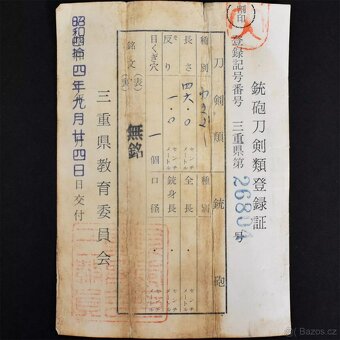 銃砲刀剣類登録証
登録記号番号 三重県第 26804 号
刻印
刀剣類 銃砲
種別 わきざし 種別
長さ 四六・〇 センチメートル 全長 ・ センチメートル
反り 一・〇 センチメートル 銃身長 ・ センチメートル
目くぎ穴 一個 口径 ・ センチメートル
銘文 (表) 無銘
(裏)
昭和四拾四年九月廿四日交付
三重県教育委員会